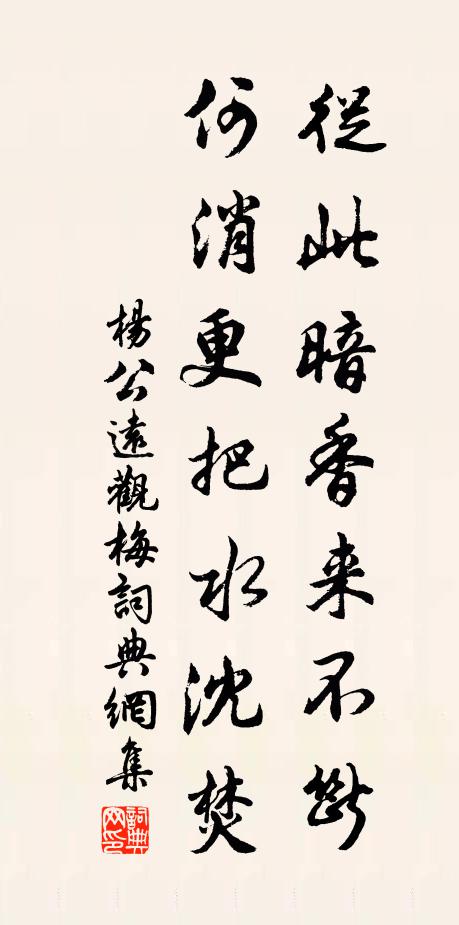 從此暗香来不斷
何消更把水沈焚
楊公遠觀梅詞典網集
詞典網印